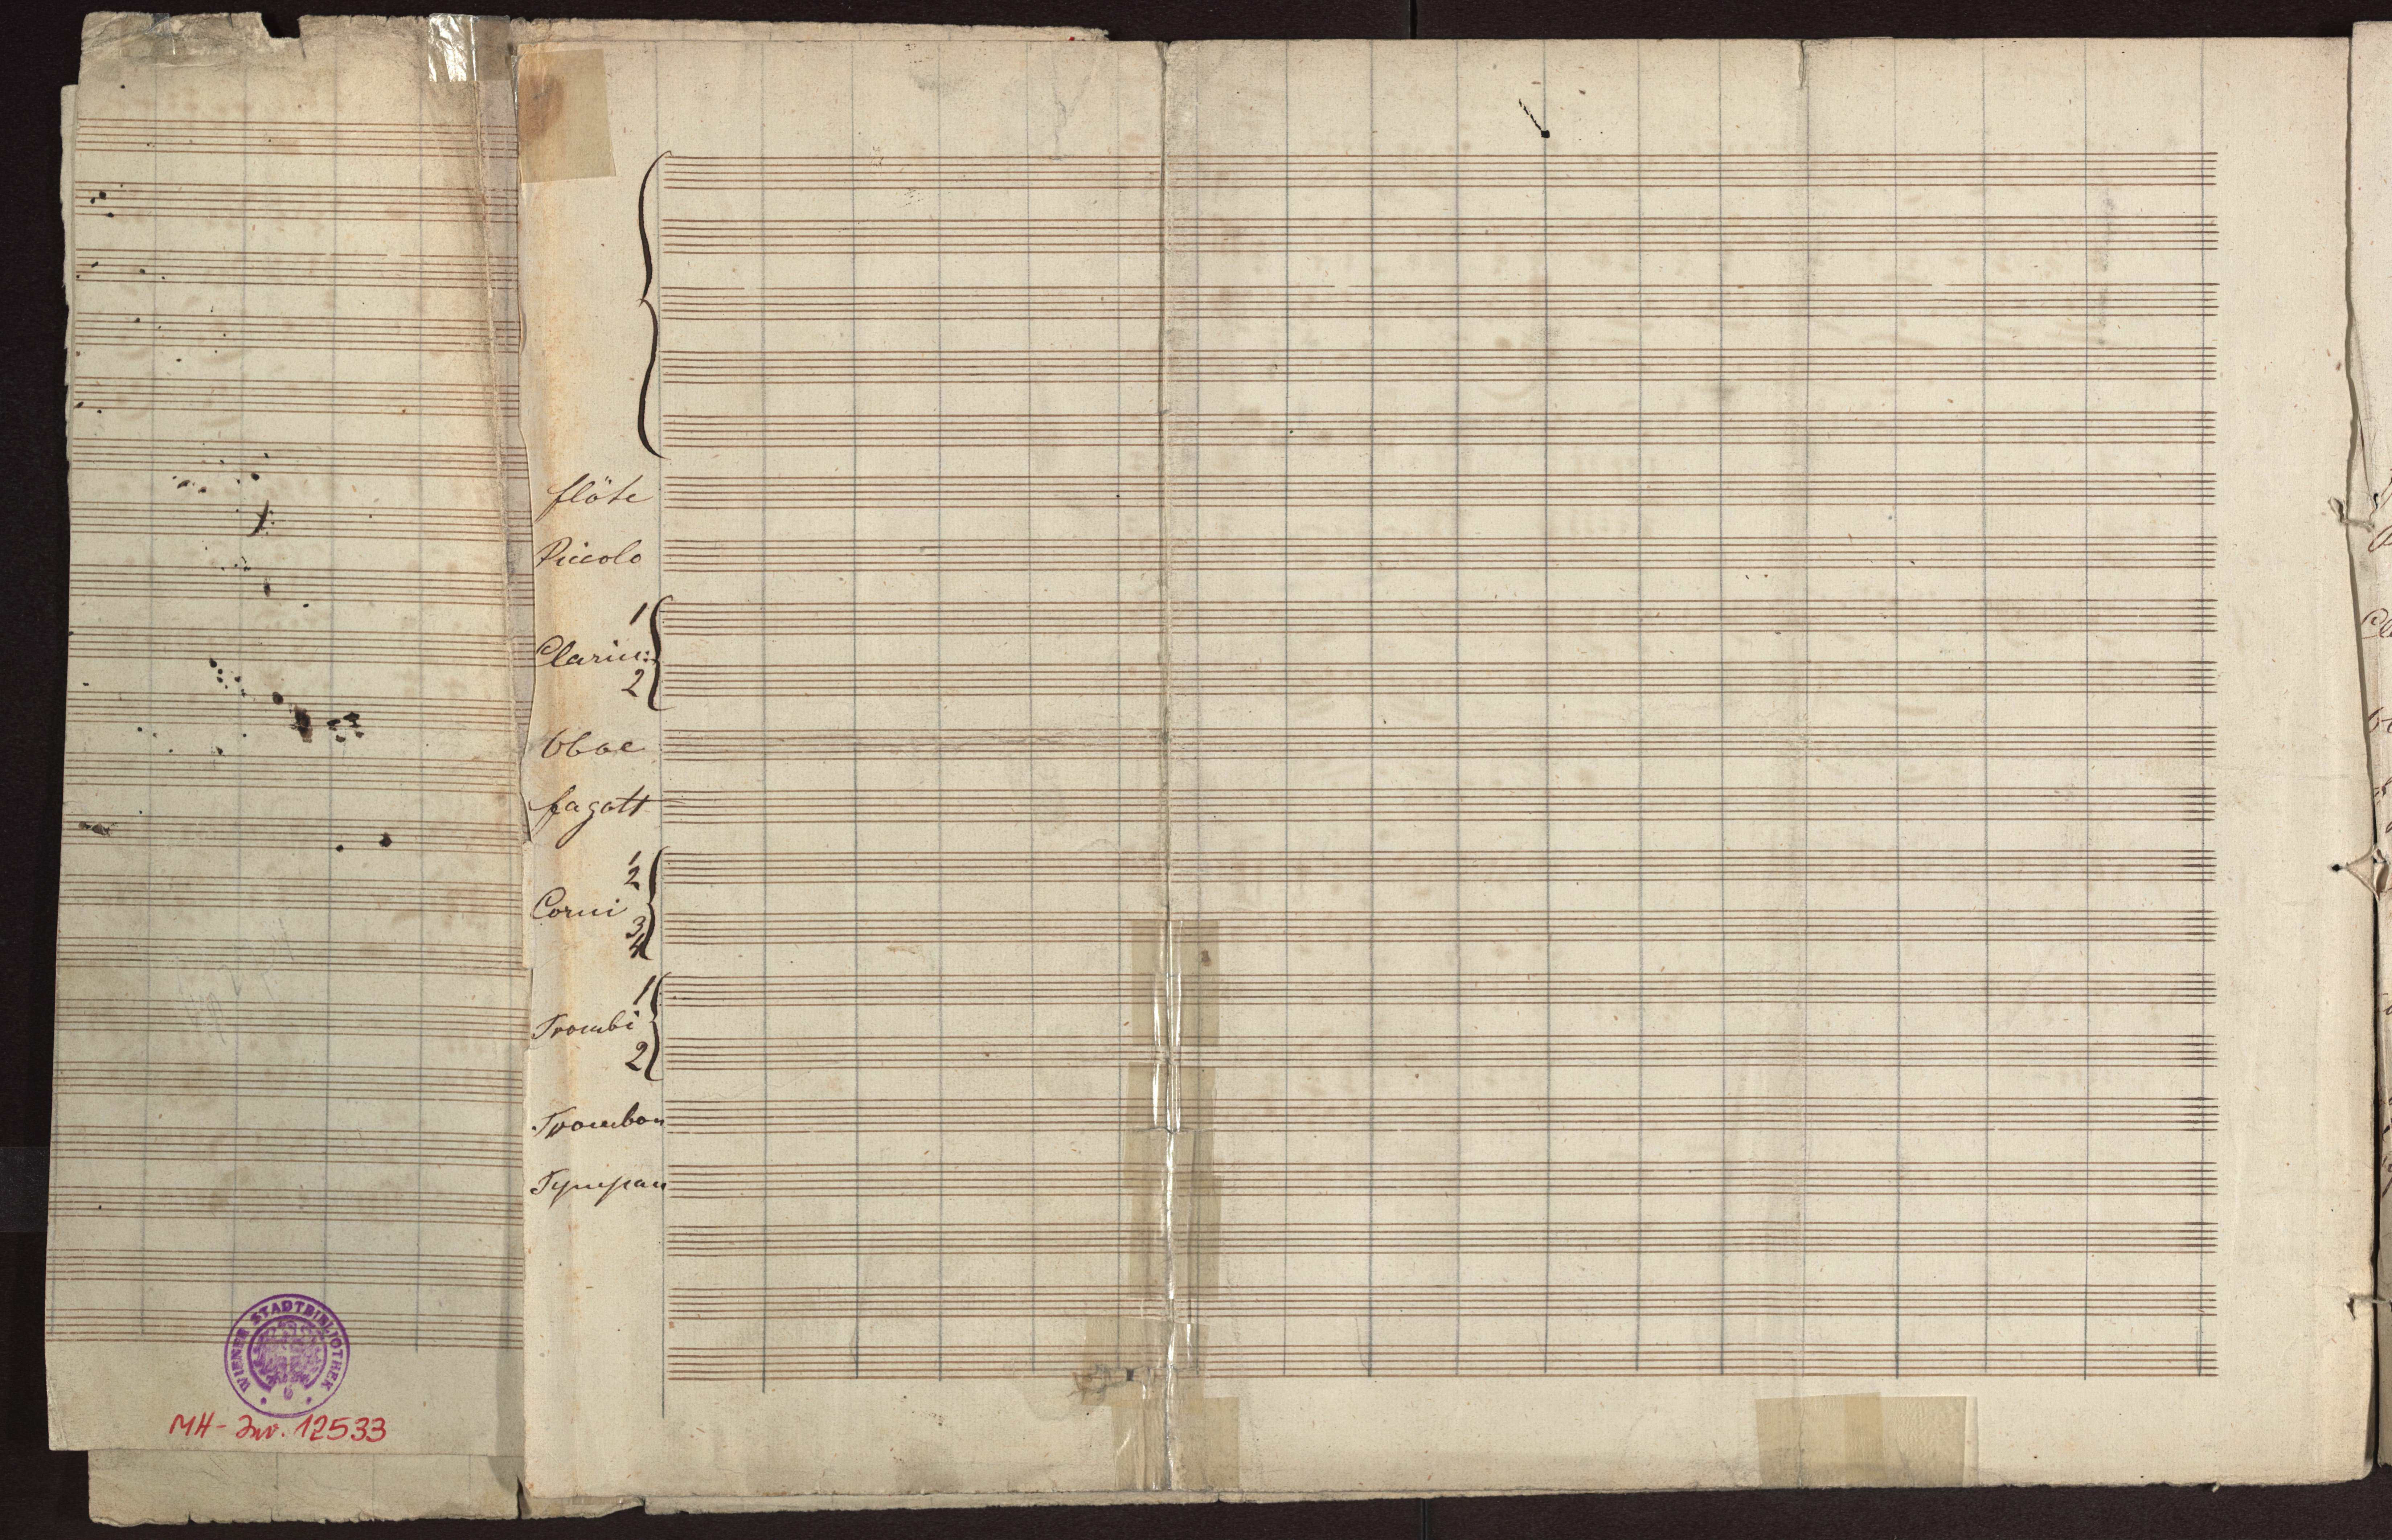 flöte
Piccolo
1
Clarin:
2
Oboe
fagott
1
2
Corni
3
4
1
Trombi
2
Trombon
Tympan
WIENER STADTBIBLIOTHEK
MH-Inv. 12533